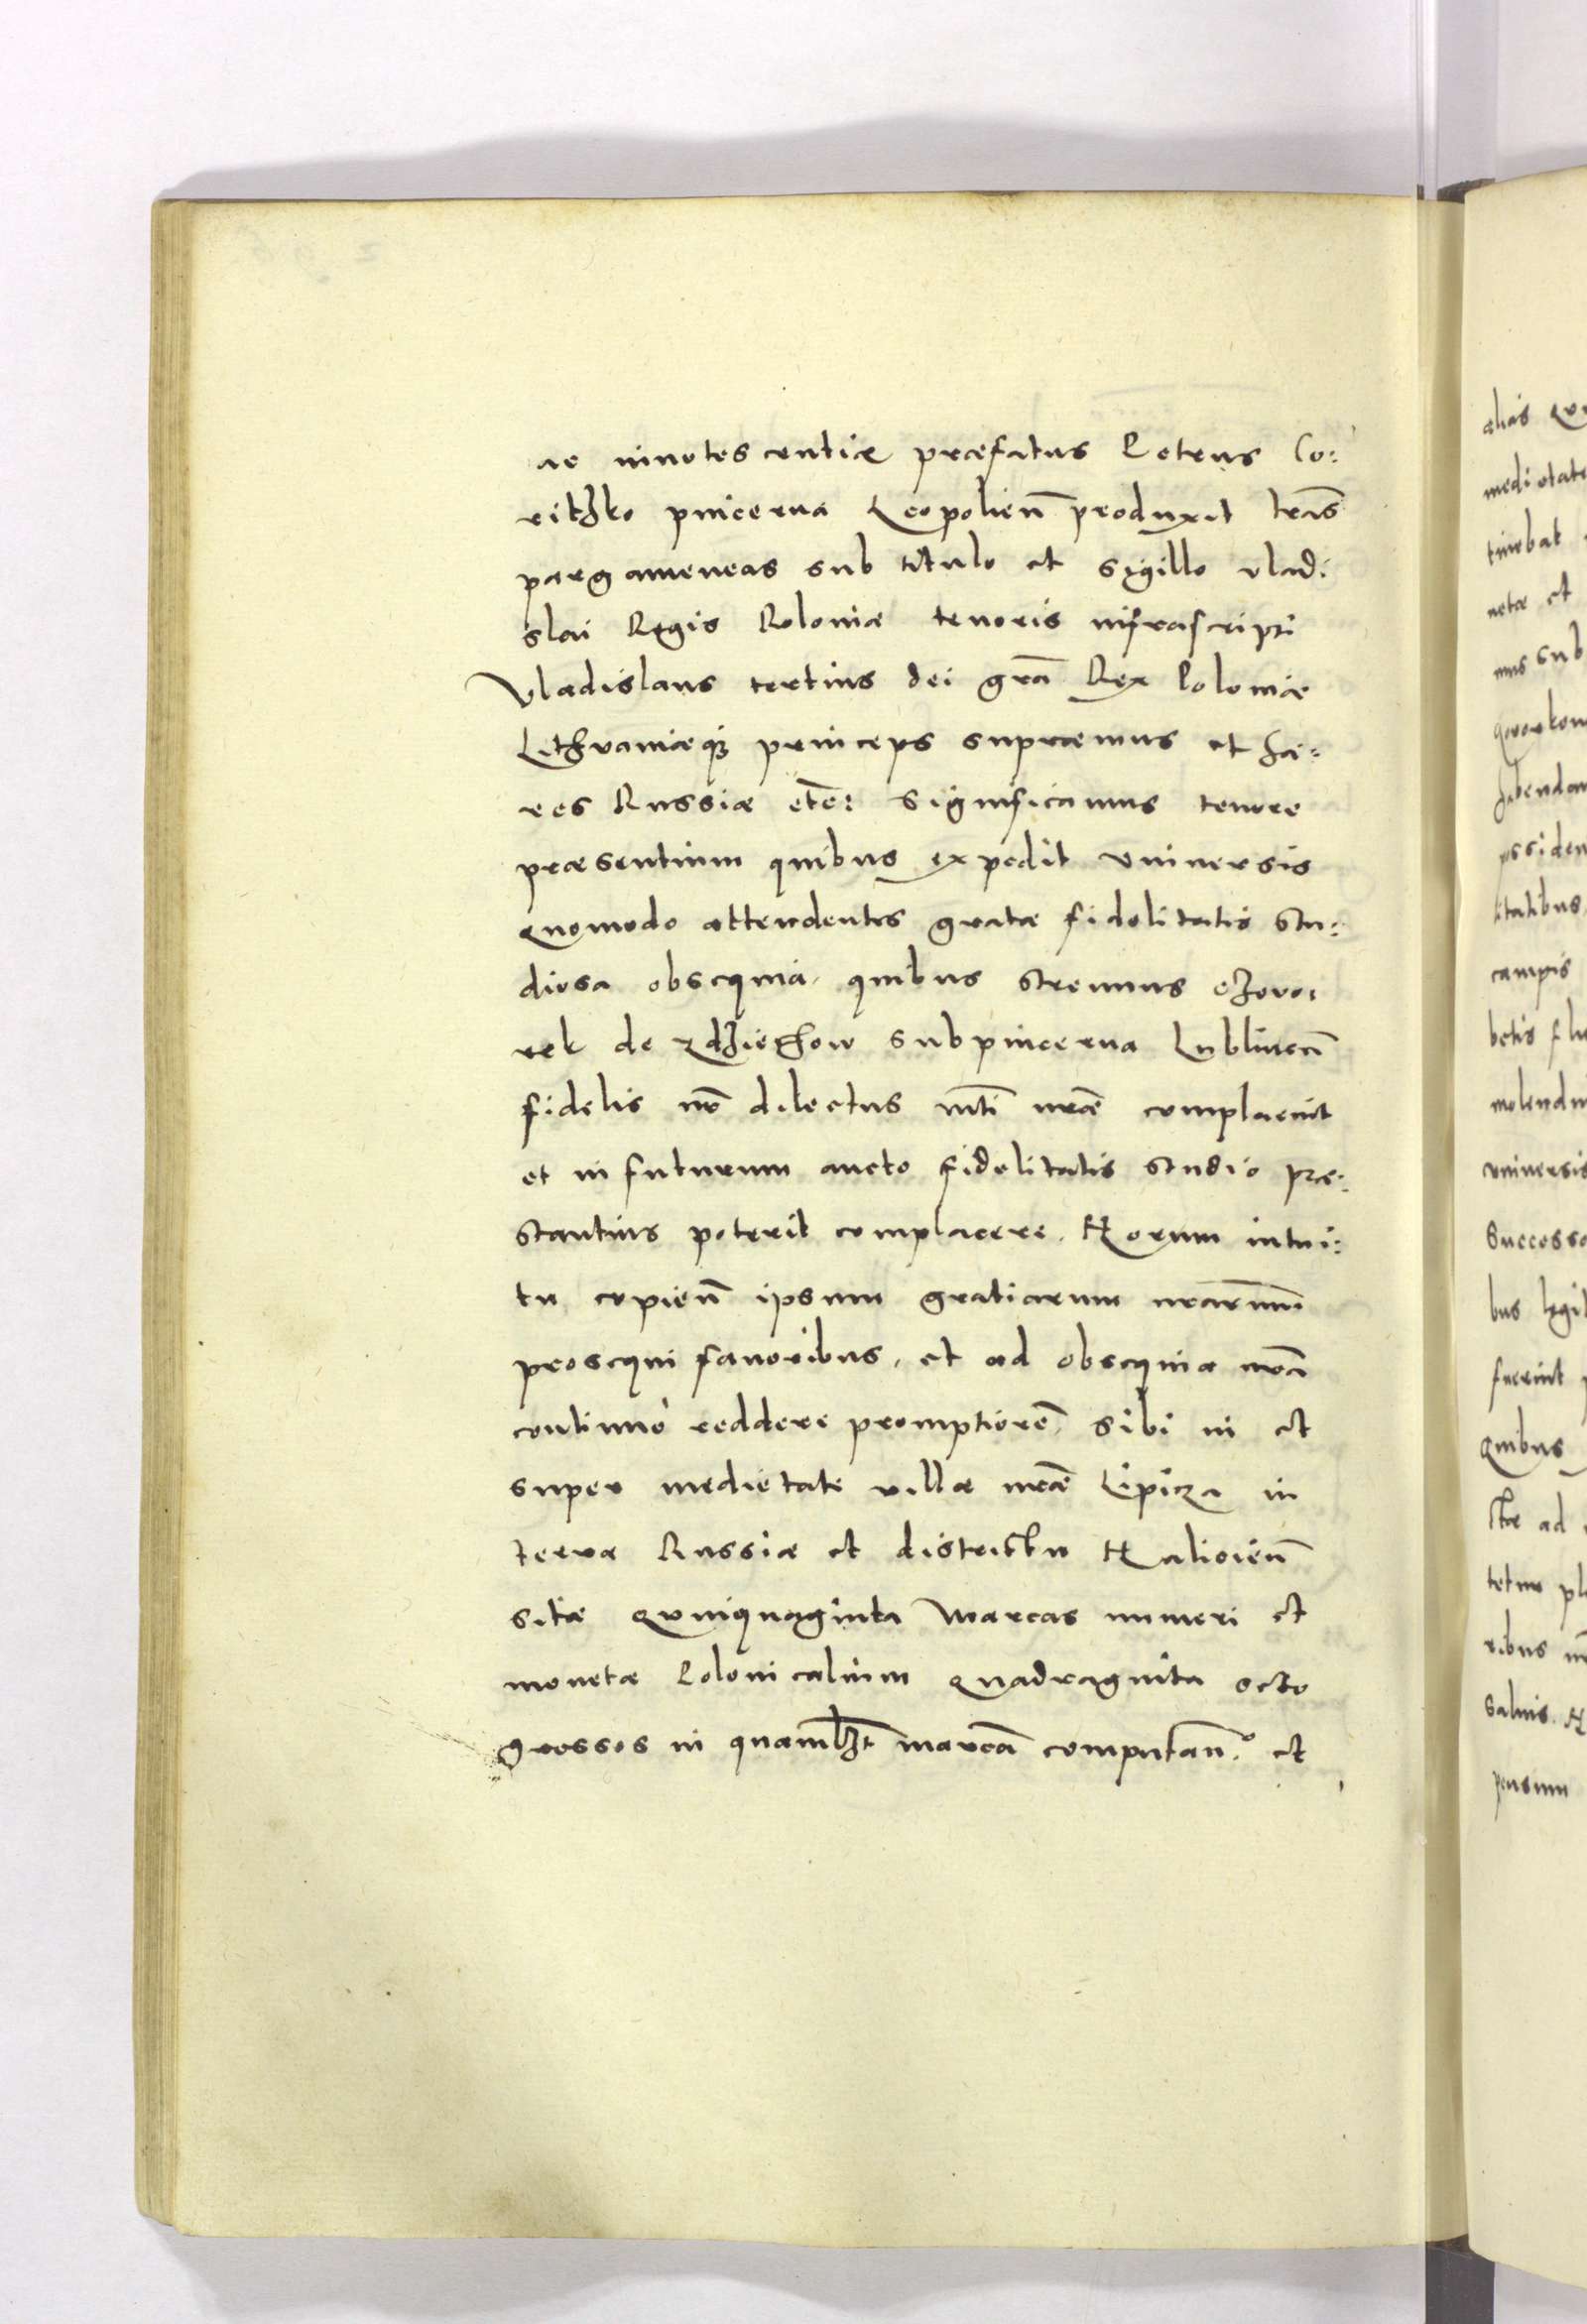 ac innotescentiæ præfatus Petrus Co:
ritzko pincerna Leopolien̄ produxit lrās
pargameneas sub titulo et sigillo vladi
slai Regis Poloniæ tenoris infrascripti
Vladislaus tertius dei grā Rex Poloniæ
Lithvaniæq3 princeps supræmus et hæ:
res Russiæ etc̄: significamus tenore
præsentium quibus expedit vniuersis
quomodo attendentes gratæ fidelitatis stu:
diosa obsequia, quibus strenuus
rek de subpincerna Lublineñ
fidelis nr̄ dilectus mti nr̄æ complacuit
et in futurum aucto fidelitatis studio præ:
stantius poterit complacere. Horum intui:
tu cupien̄ ipsum gratiarum nr̄arum
prosequi fauoribus, et ad obsequia nr̄a
continuo reddere promptiorē, sibi in et
super medietate villæ nr̄æ Lipicza in
terra Russiæ et districtu Halicien̄
sitæ Quinquaginta marcas numeri et
monetæ Polonicalium quadraginta octo
grossos in quamlzt marcā computan.º et
alias
mediotate
tinebat
netæ et
mus sub
habendam
litatibus
campis
molendin
vniuersis
Successo
bus legit
fuerint
Quibus
ctæ ad
tetur pl
ribus
Saluis
pensum